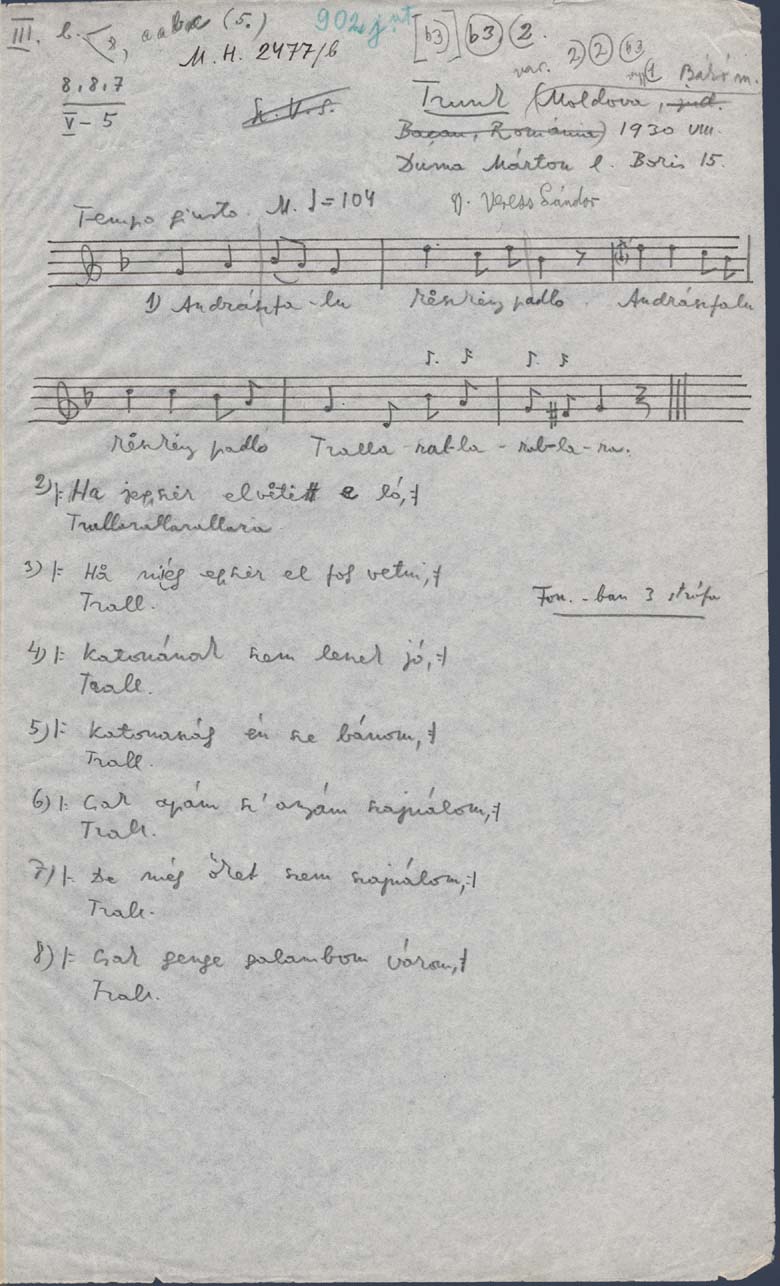 III. b. 8, aabc (5.) 902 j. [b3] b3 2.
M. H. 2477/b var. 2) 2 b3
8,8,7 Trunk (Moldova, jud. Bákó m.
V – 5 S. V. S. Bacau, România) 1930 VIII.
Duma Márton l. Boris 15.
Tempo giusto. M. ♩=104 Gy. Veress Sándor
1) Andrásfa-lu részkéz padló. Andrásfalu
részkéz padló Tralla-ral-la-ral-la-ra.
2) |: Ha jegszër elvëtëtt e ló, :|
Trallarallarallara
3) |: Hå még egszër el fog vetni, :|
Trall.
Fon.-ban 3 strófa
4) |: Katonának szem leszek jó, :|
Trall.
5) |: Katonaság én sze bánom, :|
Trall.
6) |: Csak apám sz' anyám szajnálom, :|
Trall.
7) |: De még őket szem szajnálom, :|
Trall.
8) |: Csak genge galambom várom, :|
Trall.